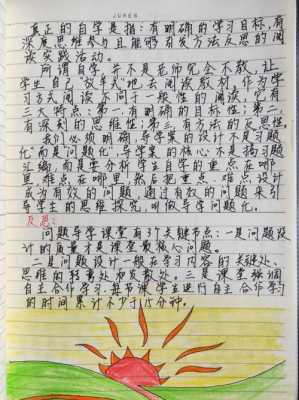 JUREN
真正的自学是指:有明确的学习目标,有
深度思维参与且能够引发方法反思的阅
读实践活动。
所谓自学,并不是老师完全不教,让
学生自己"放羊式"地去阅读教材,作为学
习方式阅读不同于一般性的阅读,它有
三大特点:第一,有明确的目标性;第二,
有深刻的思维性;第三有方法的反思性。
我们必须明确,导学案的设计不是习题
化"而是"问题化",导学案的核心不是指习题
汇编,而是要分析学生自学的重点在哪
里,难点在哪里,然后把重点、难点设计
成为有效的问题,通过有效的问题来引
导学生的思维探究,叫做导学问题化。
反思:
问题导学课堂有3个关键节点:一是问题设
计的质量才是课堂最核心问题。
二是问题设计一般在学习内容的关键处、
思维的轻重处和发散处。三是课堂强调
自主合作学习,每节课学生进行自主合作学习
的时间累计不少于15分钟。